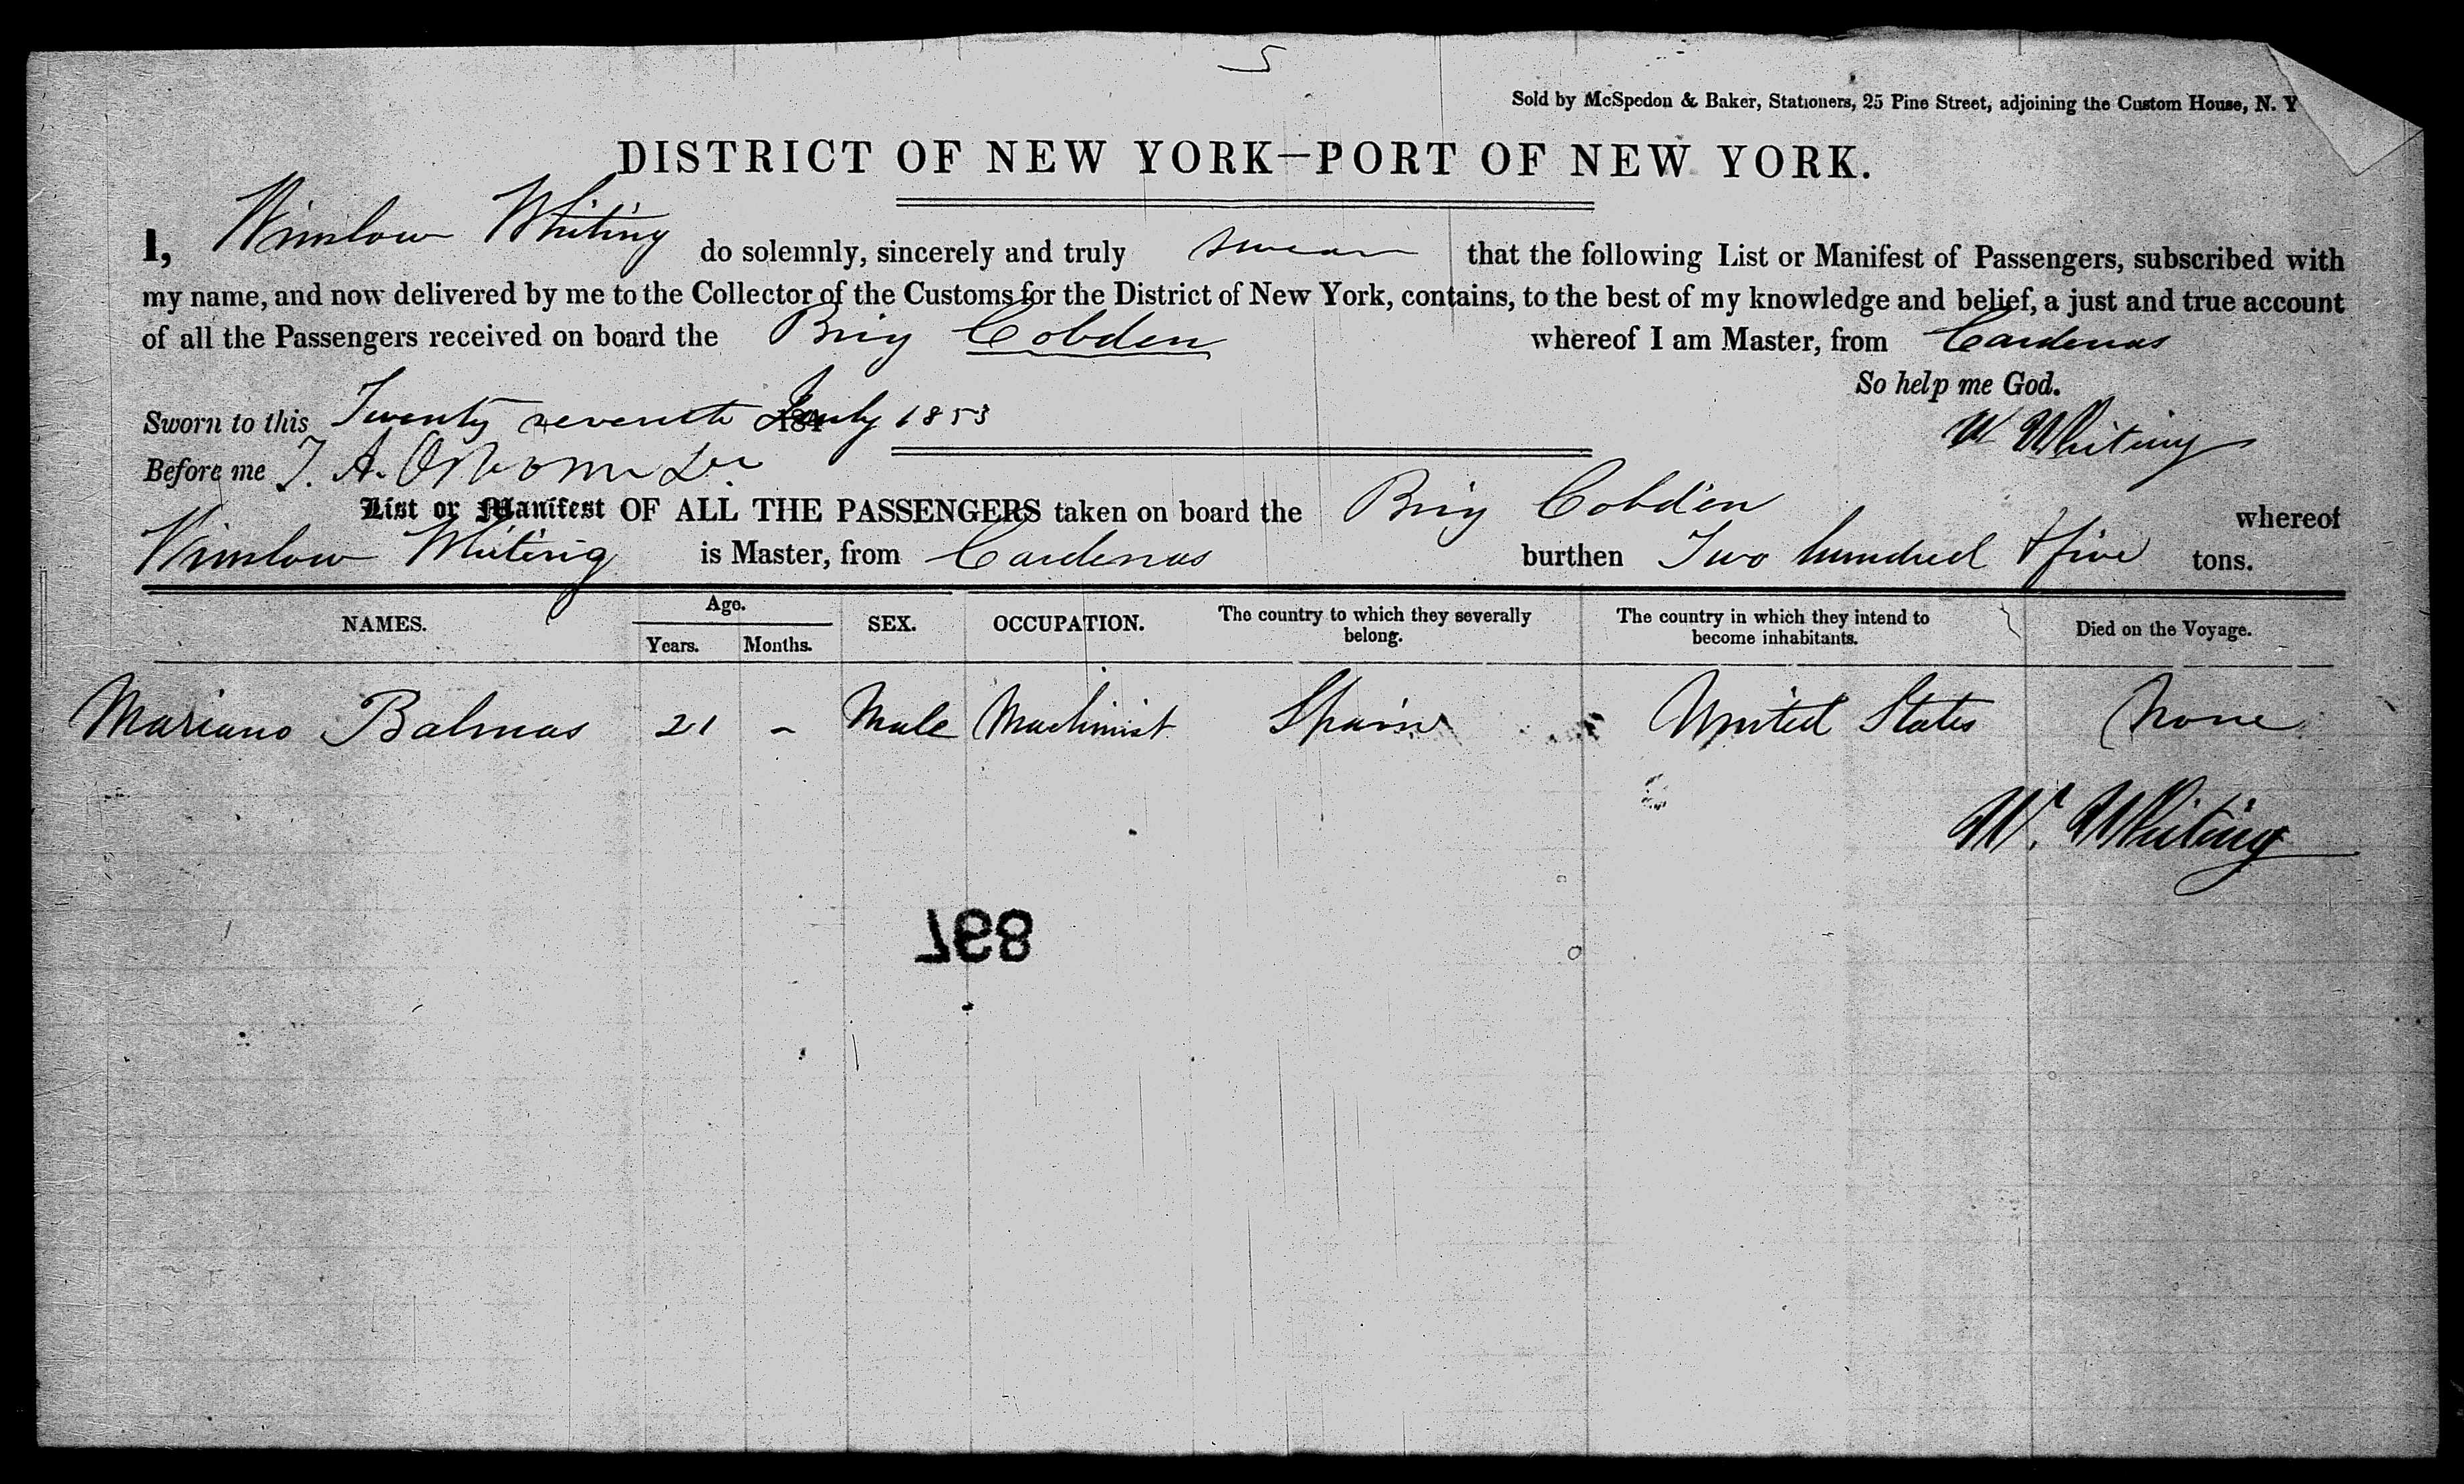 5
Sold by McSpedon & Baker, Stationers, 25 Pine Street, adjoining the Custom House, N. Y
DISTRICT OF NEW YORK—PORT OF NEW YORK.
I, Winslow Whiting do solemnly, sincerely and truly swear that the following List or Manifest of Passengers, subscribed with
my name, and now delivered by me to the Collector of the Customs for the District of New York, contains, to the best of my knowledge and belief, a just and true account
of all the Passengers received on board the Brig Cobden whereof I am Master, from Cardenas
So help me God.
Sworn to this Twenty seventh July 1853
W Whiting
Before me J. A.
List or Manifest OF ALL THE PASSENGERS taken on board the Brig Cobden whereof
Winslow Whiting is Master, from Cardenas burthen Two hundred & five tons.
NAMES. Age. SEX. OCCUPATION. The country to which they severally belong. The country in which they intend to become inhabitants. Died on the Voyage.
Years. Months.
Mariano Balmas 21 - Male Machinist Spain United States None
W. Whiting
897